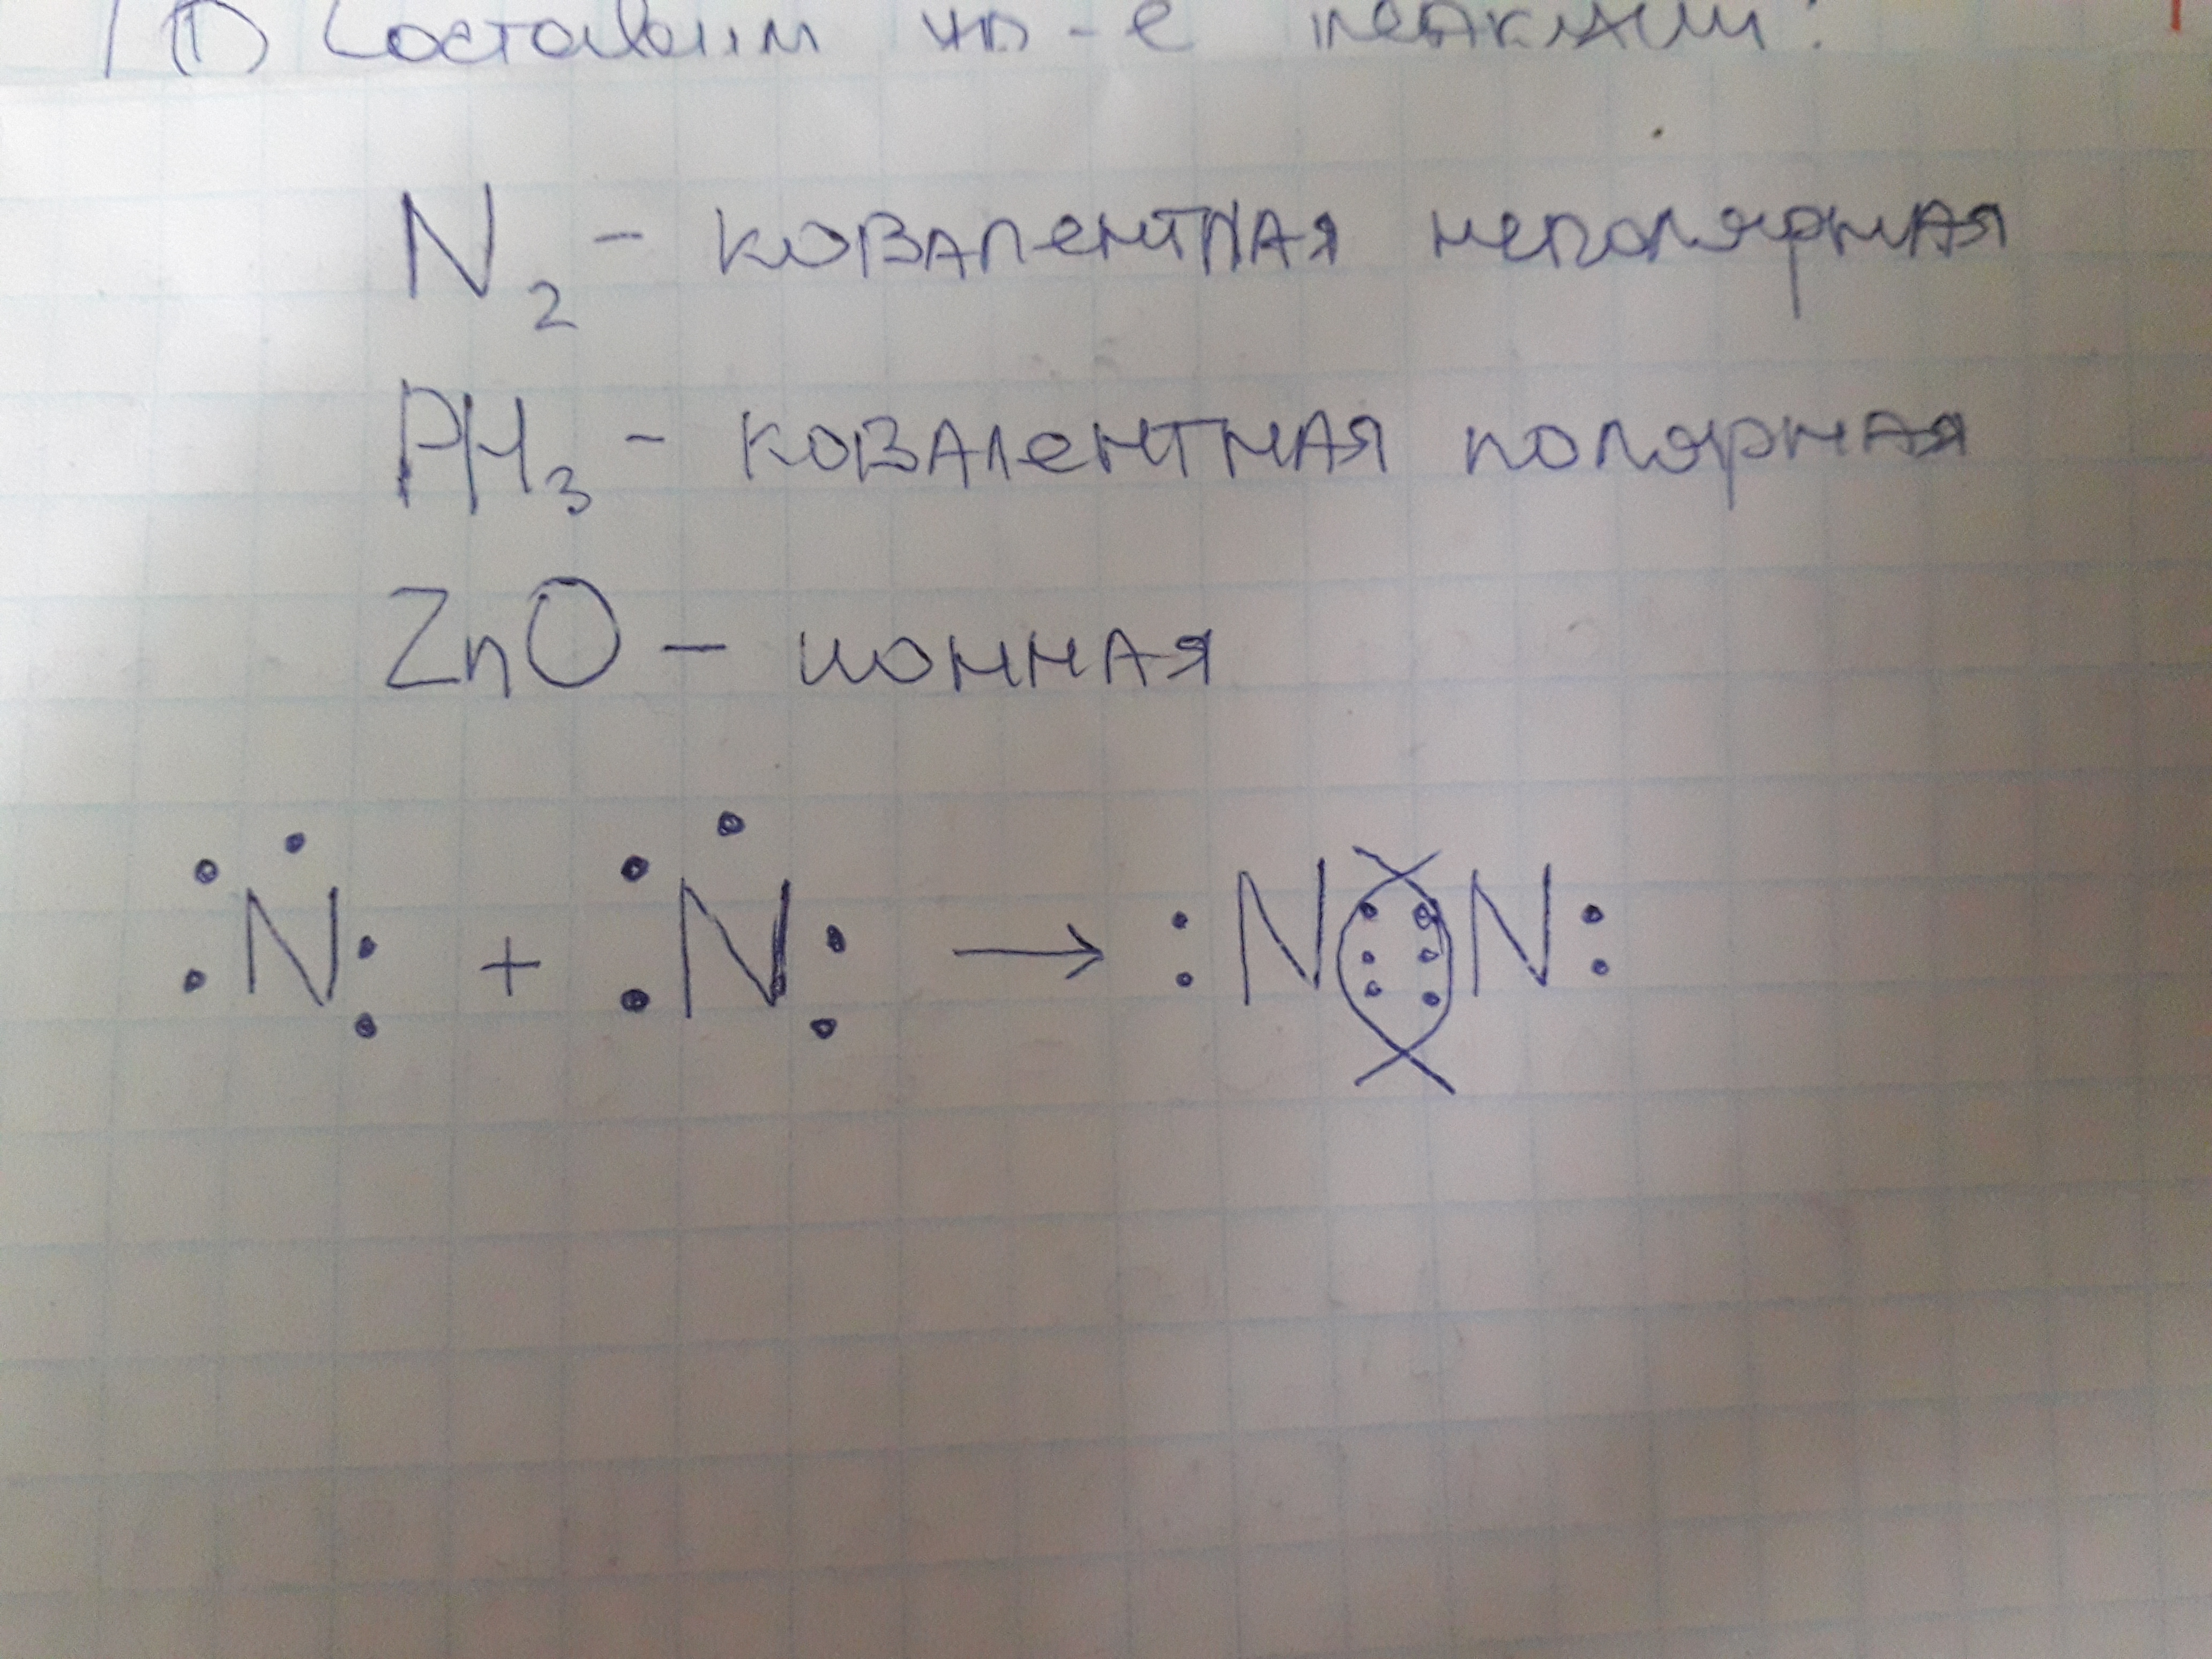 1) Составим ур-е реакции:
N2 - ковалентная неполярная
PH3 - ковалентная полярная
ZnO - ионная
N + N → :N N: